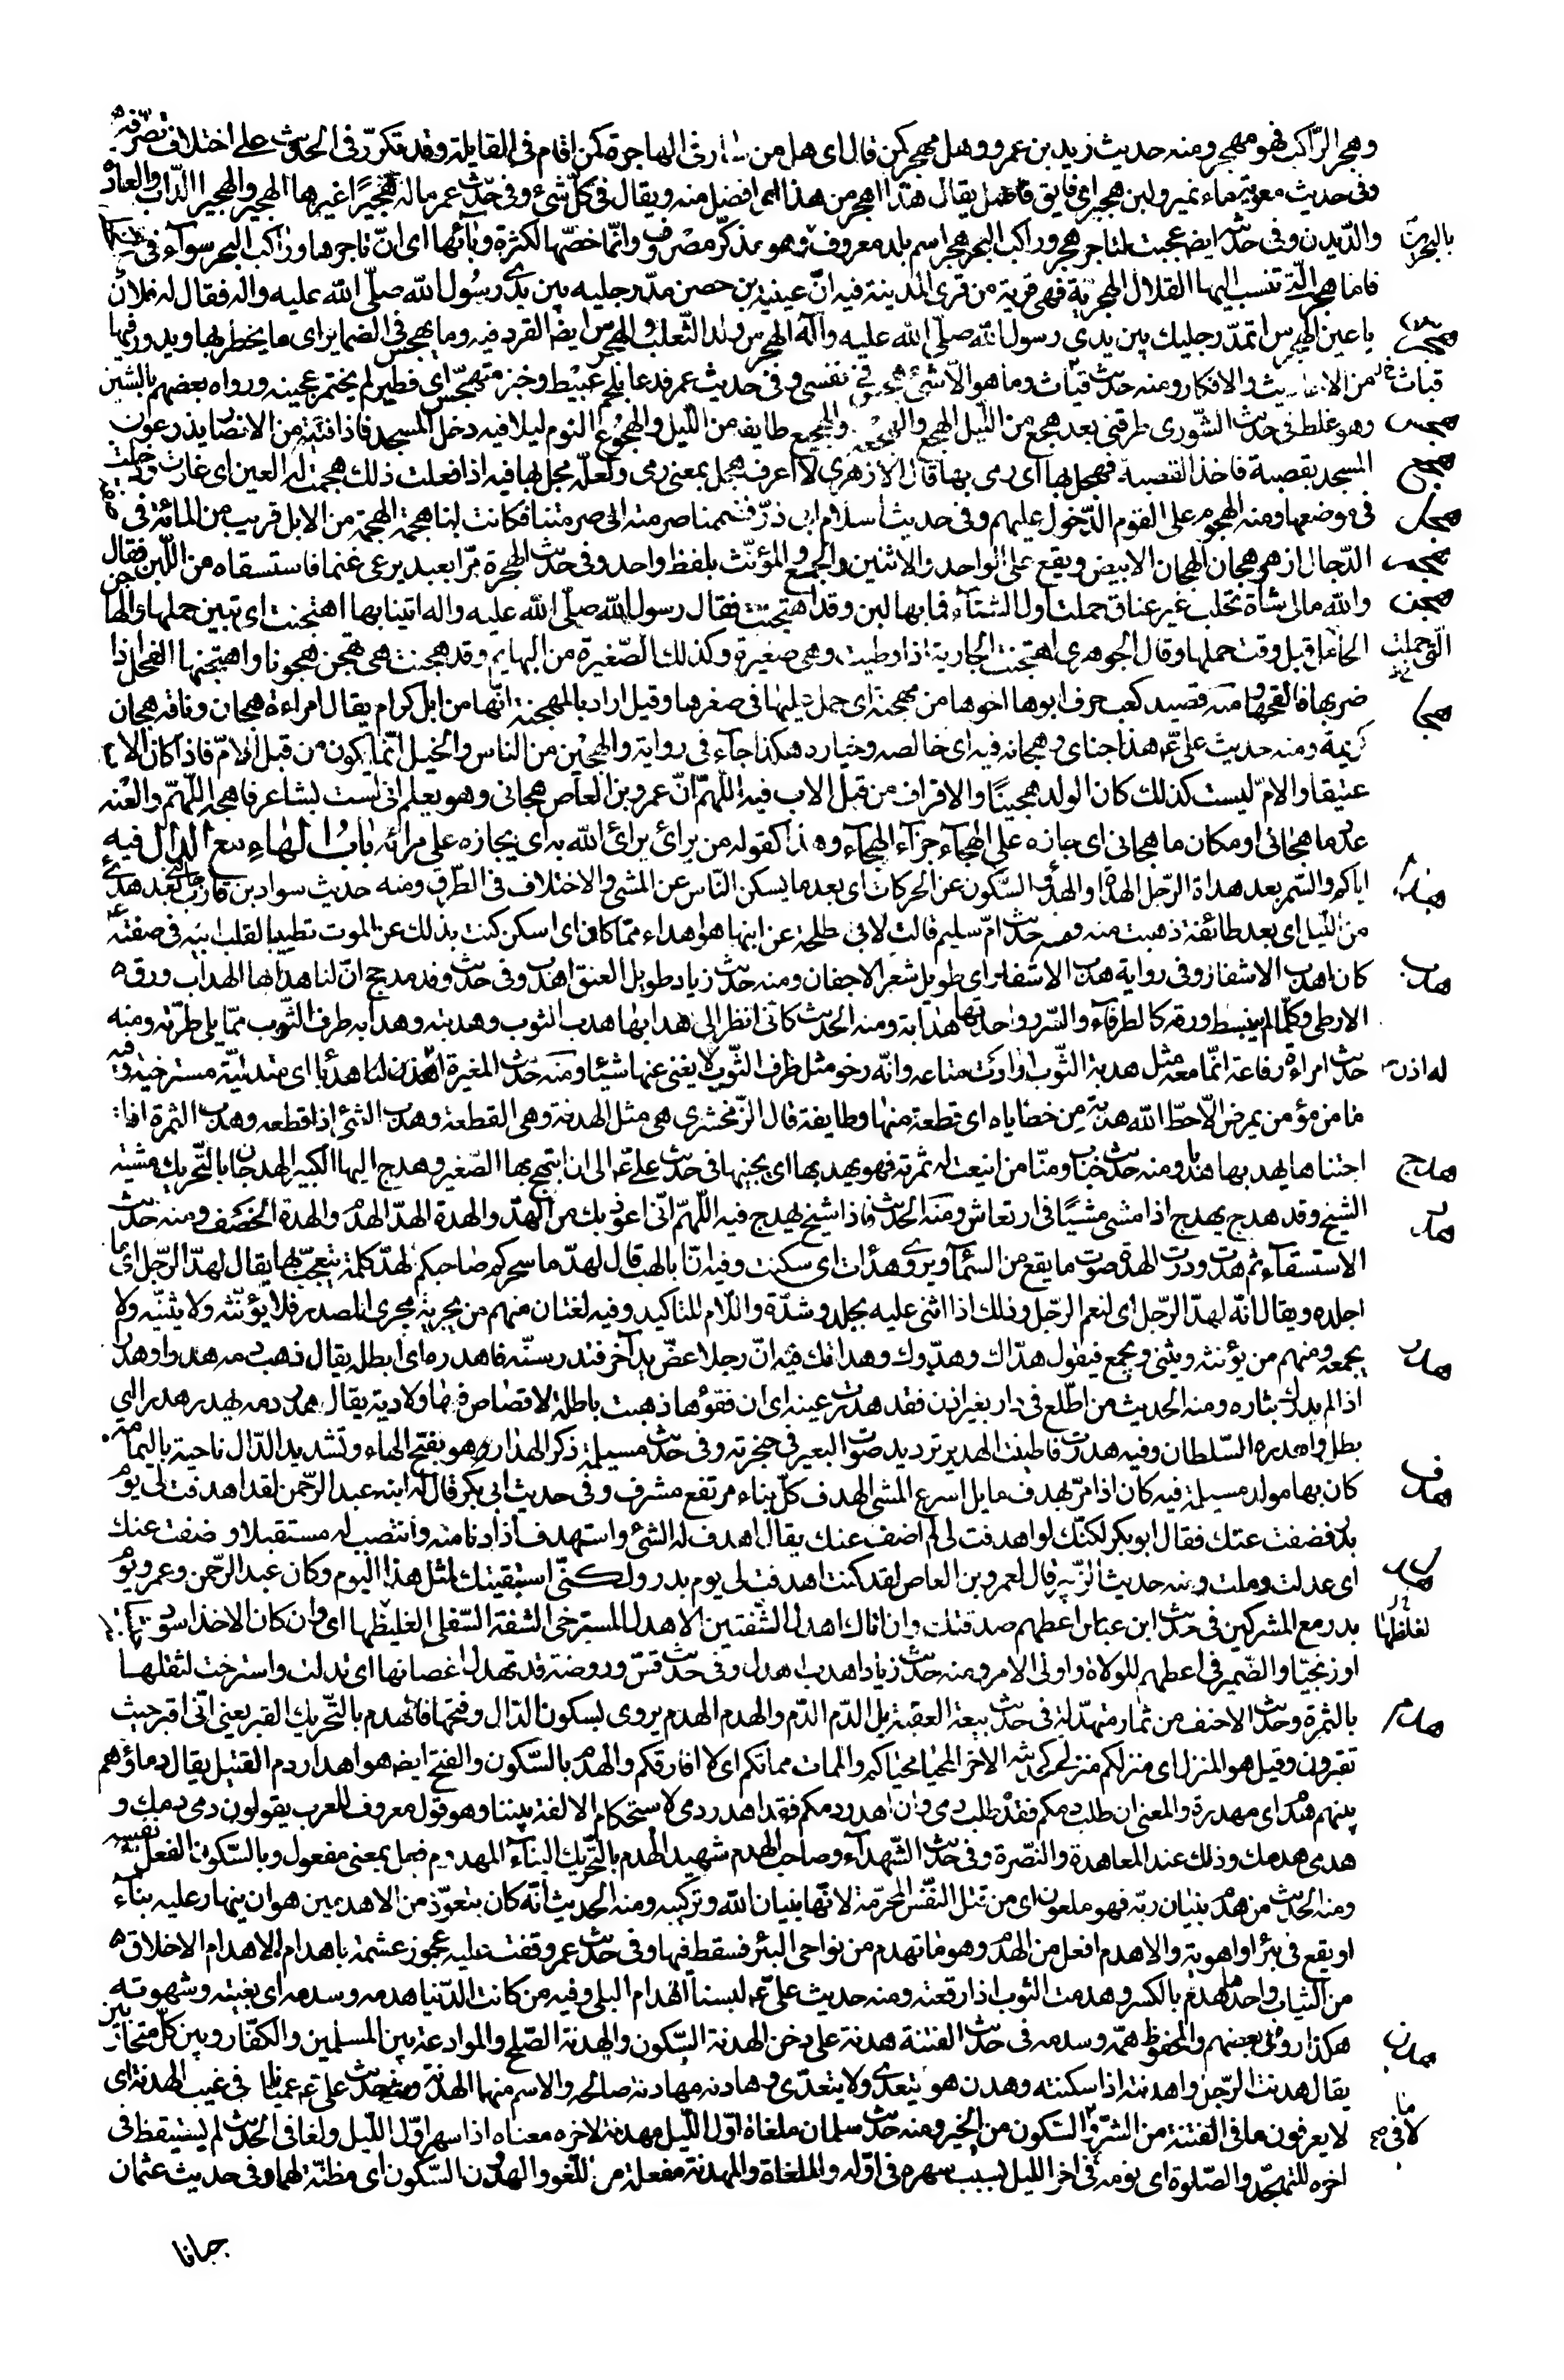 وهجر الراكب فهو مهجر ومنه حديث زيد بن عمرو وهل مهجر كمن قال اى هل من سار فى الهاجرة كمن اقام فى القايلة وقد تكرر فى الحديث على اختلاف تصرفه
وفى حديث معوية ماء نمير ولبن هجير اى فايق فاضل يقال هذا اهجر من هذا اى افضل منه ويقال فى كل شئ وفى حديث عمر ماله هجيرا غيرها الهجير والهجيرا الداب والعادة
والديدن وفى حديثه ايضا عجبت لتاجر هجر وراكب البحر هجر اسم بلد معروف وهو مذكر مصروف وانما خصها لكثرة وبائها اى ان تاجرها وراكب البحر سوآء فى
بالبحرين
فاما هجر التى تنسب اليها القلال الهجرية فهى قرية من قرى المدينة فيه ان عيينة بن حصن مد رجليه بين يدى رسول الله صلى الله عليه واله فقال له فلان
هجرس
يا عين الهجرس اتمد رجليك بين يدى رسول الله صلى الله عليه وآله الهجرس ولد الثعلب والهجرس ايضا القرد فيه وما يهجس فى الضماير اى ما يخطر بها ويدور فيها
من الاحاديث والافكار ومنه حديث قباث وما هو الا شئ هجس فى نفسى وفى حديث عمر فدعا بلحم عبيط وخبز متهجس اى فطير لم يختمر عجينه ورواه بعضهم بالشين
هجس
وهو غلط فى حديث الشورى طرقنى بعد هجع من الليل الهجع والهجعة والهجيع طايفة من الليل والهجوع النوم ليلا فيه دخل المسجد فاذا فتية من الانصار يذرعون
هجع
المسجد بقصبة فاخذ القصبة فهجل بها اى رمى بها قال الازهرى لا اعرف هجل بمعنى رمى ولعله نجل بها فيه اذا فعلت ذلك هجمت له العين اى غارت ودخلت
هجل
فى موضعها ومنه الهجوم على القوم الدخول عليهم وفى حديث اسلام ابى ذر فضممنا صرمته الى صرمتنا فكانت لنا هجمة الهجمة من الابل قريب من المائة فى
هجم
الدجال ازهر هجان الهجان الابيض ويقع على الواحد والاثنين والجمع والمؤنث بلفظ واحد وفى حديث الهجرة مرا بعبد يرعى غنما فاستسقاه من اللبن فقال
هجن
والله مالى شاة تحلب غير عناق حملت اول الشتآء فما بها لبن وقد اهتجنت فقال رسول الله صلى الله عليه واله اتينا بها اهتجنت اى تبين حملها والهاجن
التى حملت
الحامل قبل وقت حملها وقال الجوهرى اهتجنت الجارية اذا وطيت وهى صغيرة وكذلك الصغيرة من البهايم وقد هجنت هى تهجن هجونا واهتجنها الفحل اذا
ضربها فالقحها ومنه قصيد كعب حرف ابوها اخوها من مهجنة اى حمل عليها فى صغرها وقيل اراد بالمهجنة انها من ابل كرام يقال امراءة هجان وناقة هجان
هجا
كريمة ومنه حديث على ع هذا جناى وهجانه فيه اى خالصه وخياره هكذا جآء فى رواية والهجين من الناس والخيل انما يكون من قبل الام فاذا كان الاب
عتيقا والام ليست كذلك كان الولد هجينا والاقراف من قبل الاب فيه اللهم ان عمرو بن العاص هجانى وهو يعلم انى لست بشاعر فاهجه اللهم والعنه
عدد ما هجانى او مكان ما هجانى اى جازه على الهجآء جزآء الهجآء وهذا كقوله من يرائ يرائ الله به اى يجازه على مرائه باب الهاء مع الدال فيه
هدأ
اياكم والسمر بعد هداة الرجل الهداة والهدؤ السكون عن الحركات اى بعد ما يسكن الناس عن المشى والاختلاف فى الطرق ومنه حديث سواد بن قارب بعد هدئ
من الليل اى بعد طائفة ذهبت منه ومنه حديث ام سليم قالت لابى طلحة عن ابنها هو اهداء مما كان اى اسكن كنت بذلك عن الموت تطييبا لقلب ابيه فى صفته
هدب
كان اهدب الاشفار وفى رواية هدب الاشفار اى طويل شعر الاجفان ومنه حديث زياد طويل العنق اهدب وفى حديث وفد مذحج ان لنا هدابها الهداب ورق
الارطى وكلما لم ينبسط ورقه كالطرفآء والسرو واحدتها هدابة ومنه الحديث كانى انظر الى هدابها هدب الثوب وهدبته وهدابه طرف الثوب مما يلى طرته ومنه
حديث امراءة رفاعة انما معه مثل هدبة الثوب ارادت متاعه وانه رخو مثل طرف الثوب لا يغنى عنها شيئا ومنه حديث المغيرة له اذن هدباء اى متدلية مسترخية وفيه
ما من مؤمن يمرض الا حط الله هدبة من خطاياه اى قطعة منها وطايفة قال الزمخشرى هى مثل الهدفة وهى القطعة وهدب الشئ اذا قطعه وهدب الثمرة اذا
هدج
اجتناها يهدبها هدبا ومنه حديث خباب ومنا من اينعت له ثمرته فهو يهدبها اى يجنيها فى حديث على ع الى ان ابتهج بها الصغير وهدج اليها الكبير الهدجان بالتحريك مشية
الشيخ وقد هدج يهدج اذا مشى مشيا فى ارتعاش ومنه الحديث فاذا شيخ يهدج فيه اللهم انى اعوذ بك من الهد والهدة الهد الهدم والهدة الخسف ومنه حديث
هدد
الاستسقآء ثم هدت ودرت الهدة صوت ما يقع من السمآء ويروى هدأت اى سكنت وفيه ان ابا لهب قال لهد ما سحركم صاحبكم لهد كلمة يتعجب بها يقال لهد الرجل اى ما
اجلده ويقال انه لهد الرجل اى لنعم الرجل وذلك اذا اثنى عليه بجلد وشدة واللام للتاكيد وفيه لغتان منهم من يجريه مجرى المصدر فلا يؤنثه ولا يثنيه ولا
يجمعه ومنهم من يؤنثه ويثنى ويجمع فيقول هداك وهدوك وهدتك فيه ان رجلا عض يد آخر فندر سنه فاهدره اى ابطله يقال ذهب دمه هدرا وهدرا
هدر
اذا لم يدرك بثاره ومنه الحديث من اطلع فى دار بغير اذن فقد هدرت عينه اى ان فقؤها ذهبت باطلة لا قصاص فيها ولا دية يقال هدر دمه يهدر هدرا اى
بطل واهدره السلطان وفيه هدرت فاطنبت الهدير ترديد صوت البعير فى حنجرته وفى حديث مسيلمة ذكر الهدار وهو بفتح الهاء وتشديد الدال ناحية باليمامة
هدف
كان بها مولد مسيلمة فيه كان اذا مر بهدف مايل اسرع المشى الهدف كل بناء مرتفع مشرف وفى حديث ابى بكر قال له ابنه عبد الرحمن لقد اهدفت لى يوم
بدر فضفت عنك فقال ابو بكر لكنك لو اهدفت لى لم اضف عنك يقال اهدف له الشئ واستهدف اذا دنا منه وانتصب له مستقبلا وضفت عنك
اى عدلت وملت ومنه حديث الزبير قال لعمرو بن العاص لقد كنت اهدفت لى يوم بدر ولكنى استبقيتك لمثل هذا اليوم وكان عبد الرحمن وعمرو يوم
هدل
بدر مع المشركين فى حديث ابن عباس اعطهم صدقتك وان اتاك اهدل الشفتين الاهدل المسترخى الشفة السفلى الغليظها اى وان كان الاخذ اسود
اوزنجيا والضمير فى اعطهم للولاة واولى الامر ومنه حديث زياد اهدب اهدل وفى حديث قس وروضة قد تهدل اغصانها اى تدلت واسترخت لثقلها
هدم
بالثمرة وحديث الاحنف من ثمار متهدلة فى حديث بيعة العقبة بل الدم الدم والهدم الهدم يروى بسكون الدال وفتحها فالهدم بالتحريك القبر يعنى انى اقبر حيث
تقبرون وقيل هو المنزل اى منزلكم منزلى كحديثه الاخر المحيا محياكم والممات مماتكم اى لا افارقكم والهدم بالسكون والفتح ايضا هو اهدار دم القتيل يقال دماؤهم
بينهم هدم اى مهدرة والمعنى ان طلب دمكم فقد طلب دمى وان اهدر دمكم فقد اهدر دمى لاستحكام الالفة بيننا وهو قول معروف للعرب يقولون دمى دمك و
هدمى هدمك وذلك عند المعاهدة والنصرة وفى حديث الشهدآء وصاحب الهدم شهيد الهدم بالتحريك البنآء المهدوم فعل بمعنى مفعول وبالسكون الفعل نفسه
ومنه الحديث من هدم بنيان ربه فهو ملعون اى من قتل النفس المحرمة لانها بنيان الله وتركيبه ومنه الحديث انه كان يتعوذ من الاهدمين هو ان ينهار عليه بنآء
او يقع فى بئر او اهوية والاهدم افعل من الهدم وهو ما تهدم من نواحى البئر فسقط فيها وفى حديث عمر وقفت عليه عجوز عشمة باهدام الاهدام الاخلاق
من الثياب واحدها هدم بالكسر وهدمت الثوب اذا رقعته ومنه حديث على ع لبسنا اهدام البلى وفيه من كانت الدنيا هدمه وسدمه اى بغيته وشهوته
هدن
هكذا روى بعضهم والمحفوظ همه وسدمه فى حديث الفتنة هدنة على دخن الهدنة السكون والهدنة الصلح والموادعة بين المسلمين والكفار وبين كل متحاربين
يقال هدنت الرجل واهدنته اذا سكنته وهدن هو يتعدى ولا يتعدى وهادنه مهادنة صالحه والاسم منها الهدنة ومنه حديث على ع عميانا فى غيب الهدنة اى
لا يعرفون ما فى الفتنة من الشر والسكون من الخير ومنه حديث سلمان ملغاة اول الليل مهدنة لاخره معناه اذا سهر اول الليل ولغا فى الحديث لم يستيقظ فى
اخره للتهجد والصلوة اى نومه فى اخر الليل بسبب سهره فى اوله والملغاة والمهدنة مفعلة من اللغو والهدون السكون اى مظنة لهما وفى حديث عثمان
جبانا